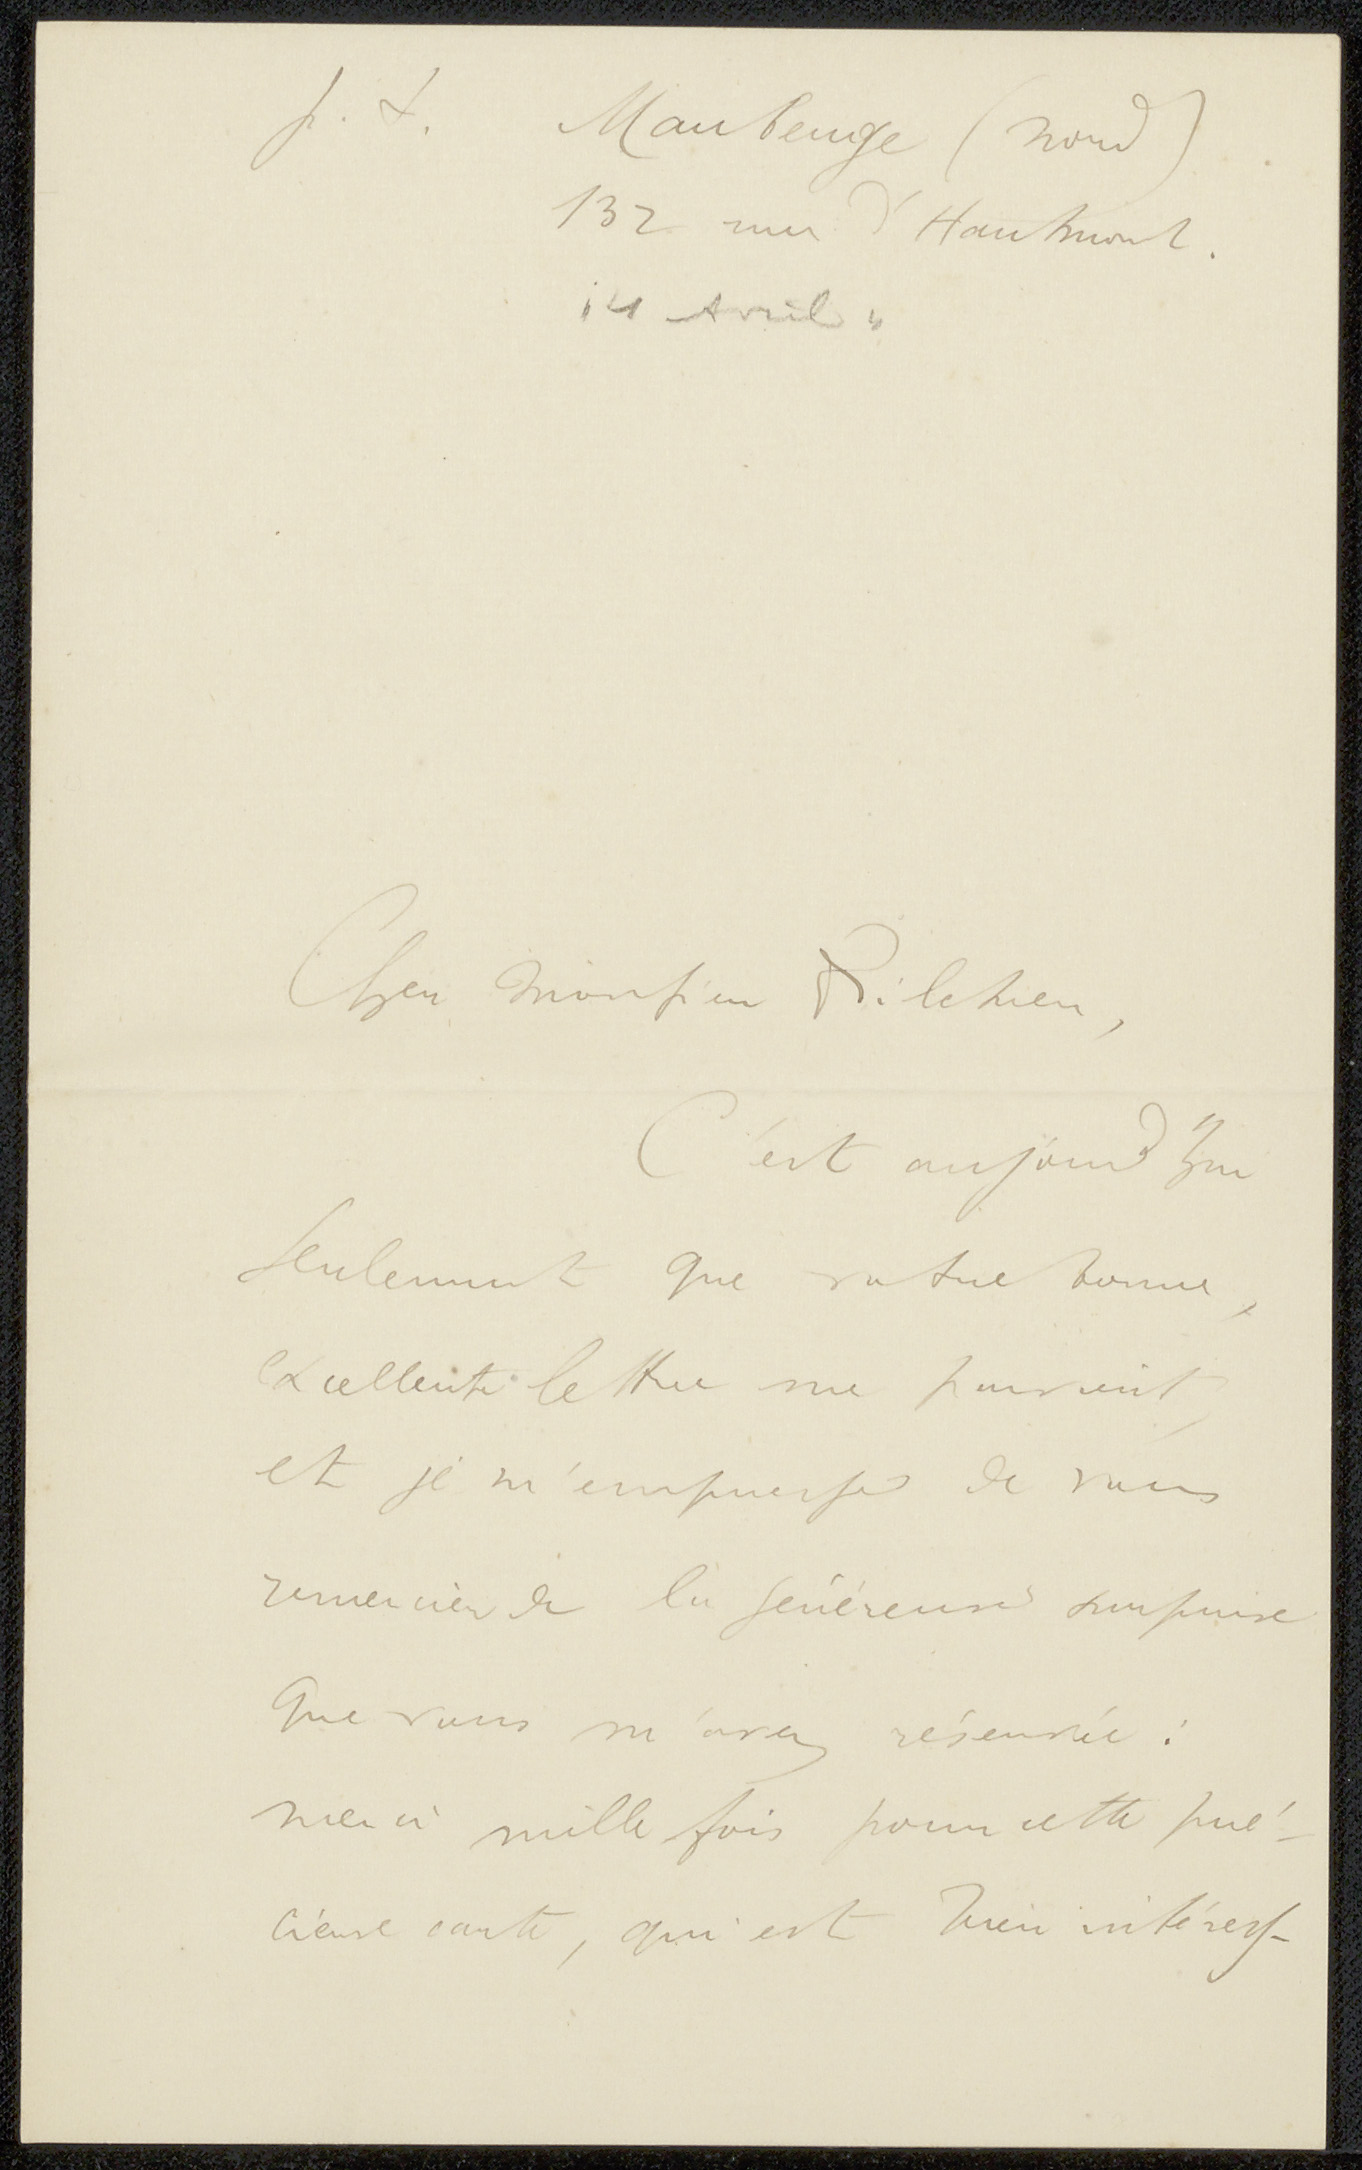 p. t. Maubeuge (Nord)
132 rue d'Hautmont.
14 Avril "
Cher Monsieur Pilchier,
C'est aujourd'hui
seulement que votre bonne,
excellente lettre me parvient,
et je m'empresse de vous
remercier de la généreuse surprise
que vous m'avez réservée :
merci mille fois pour cette pré-
cieuse carte, qui est bien intéres-